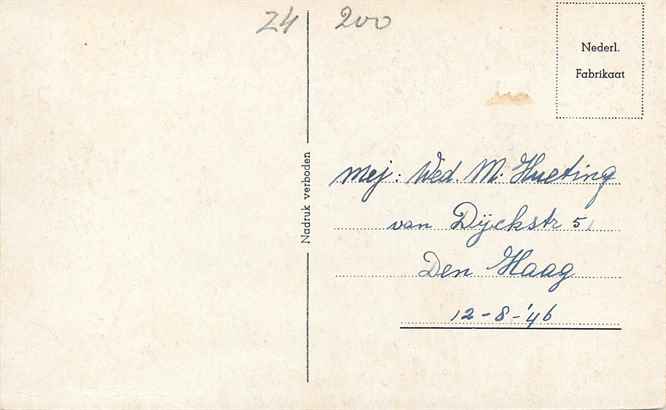 Z4 200
Nederl.
Fabrikaat
Nadruk verboden
Mej: Wed. M. Hueting
van Dijckstr 5,
Den Haag
12-8-'46